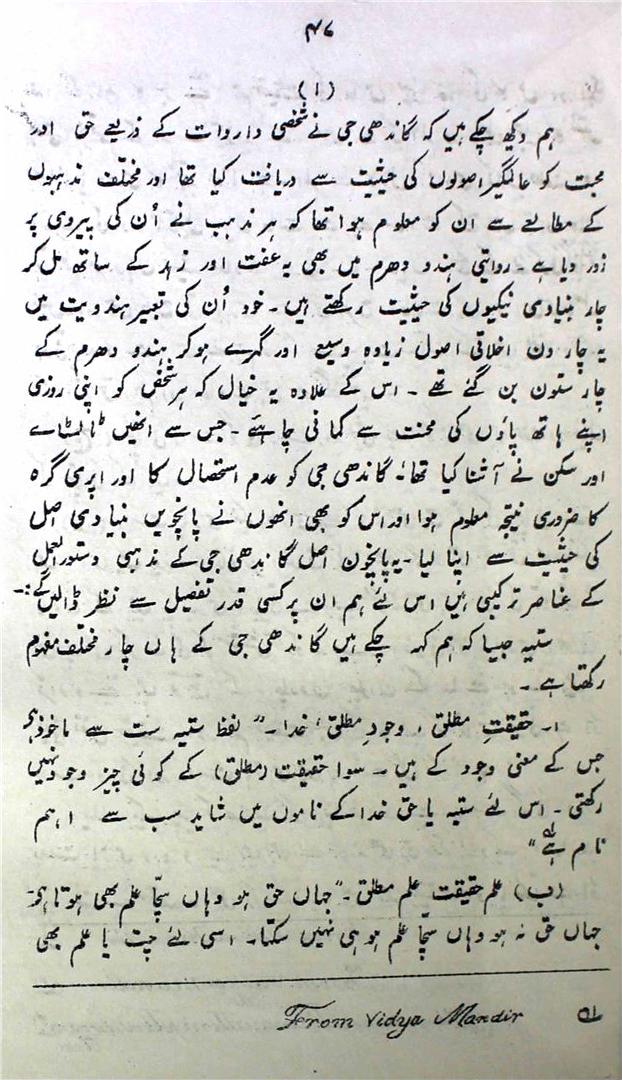 ۴۷
(۱)
ہم دیکھ چکے ہیں کہ گاندھی جی نے شخصی واردات کے ذریعے حق اور
محبت کو عالمگیر اصولوں کی حیثیت سے دریافت کیا تھا اور مختلف مذہبوں
کے مطالعے سے ان کو معلوم ہوا تھا کہ ہر مذہب نے اُن کی پیروی پر
زور دیا ہے۔ روایتی ہندو دھرم میں بھی یہ عفت اور زہد کے ساتھ مل کر
چار بنیادی نیکیوں کی حیثیت رکھتے ہیں۔ خود اُن کی تعبیر ہندویت میں
یہ چار دن اخلاقی اصول زیادہ وسیع اور گہرے ہوکر ہندو دھرم کے
چار ستون بن گئے تھے ۔ اس کے علاوہ یہ خیال کہ ہر شخص کو اپنی روزی
اپنے ہاتھ پاؤں کی محنت سے کمانی چاہئے ۔ جس سے انھیں ٹالسٹاے
اور سکن نے آشنا کیا تھا۔ گاندھی جی کو عدم استحصال کا اور اپری گرہ
کا ضروری نتیجہ معلوم ہوا اور اس کو بھی انھوں نے پانچویں بنیادی اصل
کی حیثیت سے اپنا لیا ۔ یہ پانچوں اصل گاندھی جی کے مذہبی دستور العمل
کے عناصر ترکیبی ہیں اس لئے ہم ان پر کسی قدر تفصیل سے نظر ڈالیں گے:۔
ستیہ جیسا کہ ہم کہہ چکے ہیں گاندھی جی کے ہاں چار مختلف مفہوم
رکھتا ہے ۔
ا۔ حقیقتِ مطلق ، وجودِ مطلق ، خدا ۔ "لفظ ستیہ ست سے ماخوذ ہے
جس کے معنی وجود کے ہیں ۔ سوا حقیقت (مطلق) کے کوئی چیز وجود نہیں
رکھتی ۔ اس لئے ستیہ یا حق خدا کے ناموں میں شاید سب سے اہم
نام ہے" ؎۱
(ب) علم حقیقت علم مطلق ۔ "جہاں حق ہو وہاں سچّا علم بھی ہوتا ہے۔
جہاں حق نہ ہو وہاں سچّا علم ہو ہی نہیں سکتا۔ اسی لئے چت یا علم بھی
؎۱ From Vidya Mandir